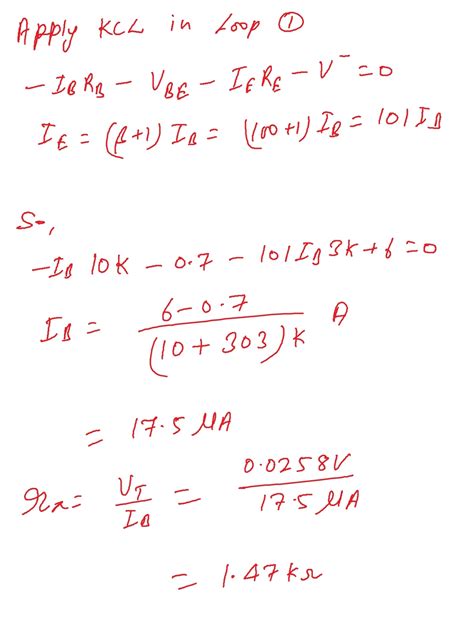 Apply KCL in Loop ①
- I_B R_B - V_BE - I_E R_E - V⁻ = 0
I_E = (β+1) I_B = (100+1) I_B = 101 I_B
So,
-I_B 10K - 0.7 - 101 I_B 3K + 6 = 0
I_B = (6-0.7) / (10+303)K A
= 17.5 μA
r_π = V_T / I_B = 0.0258V / 17.5 μA
= 1.47kΩ